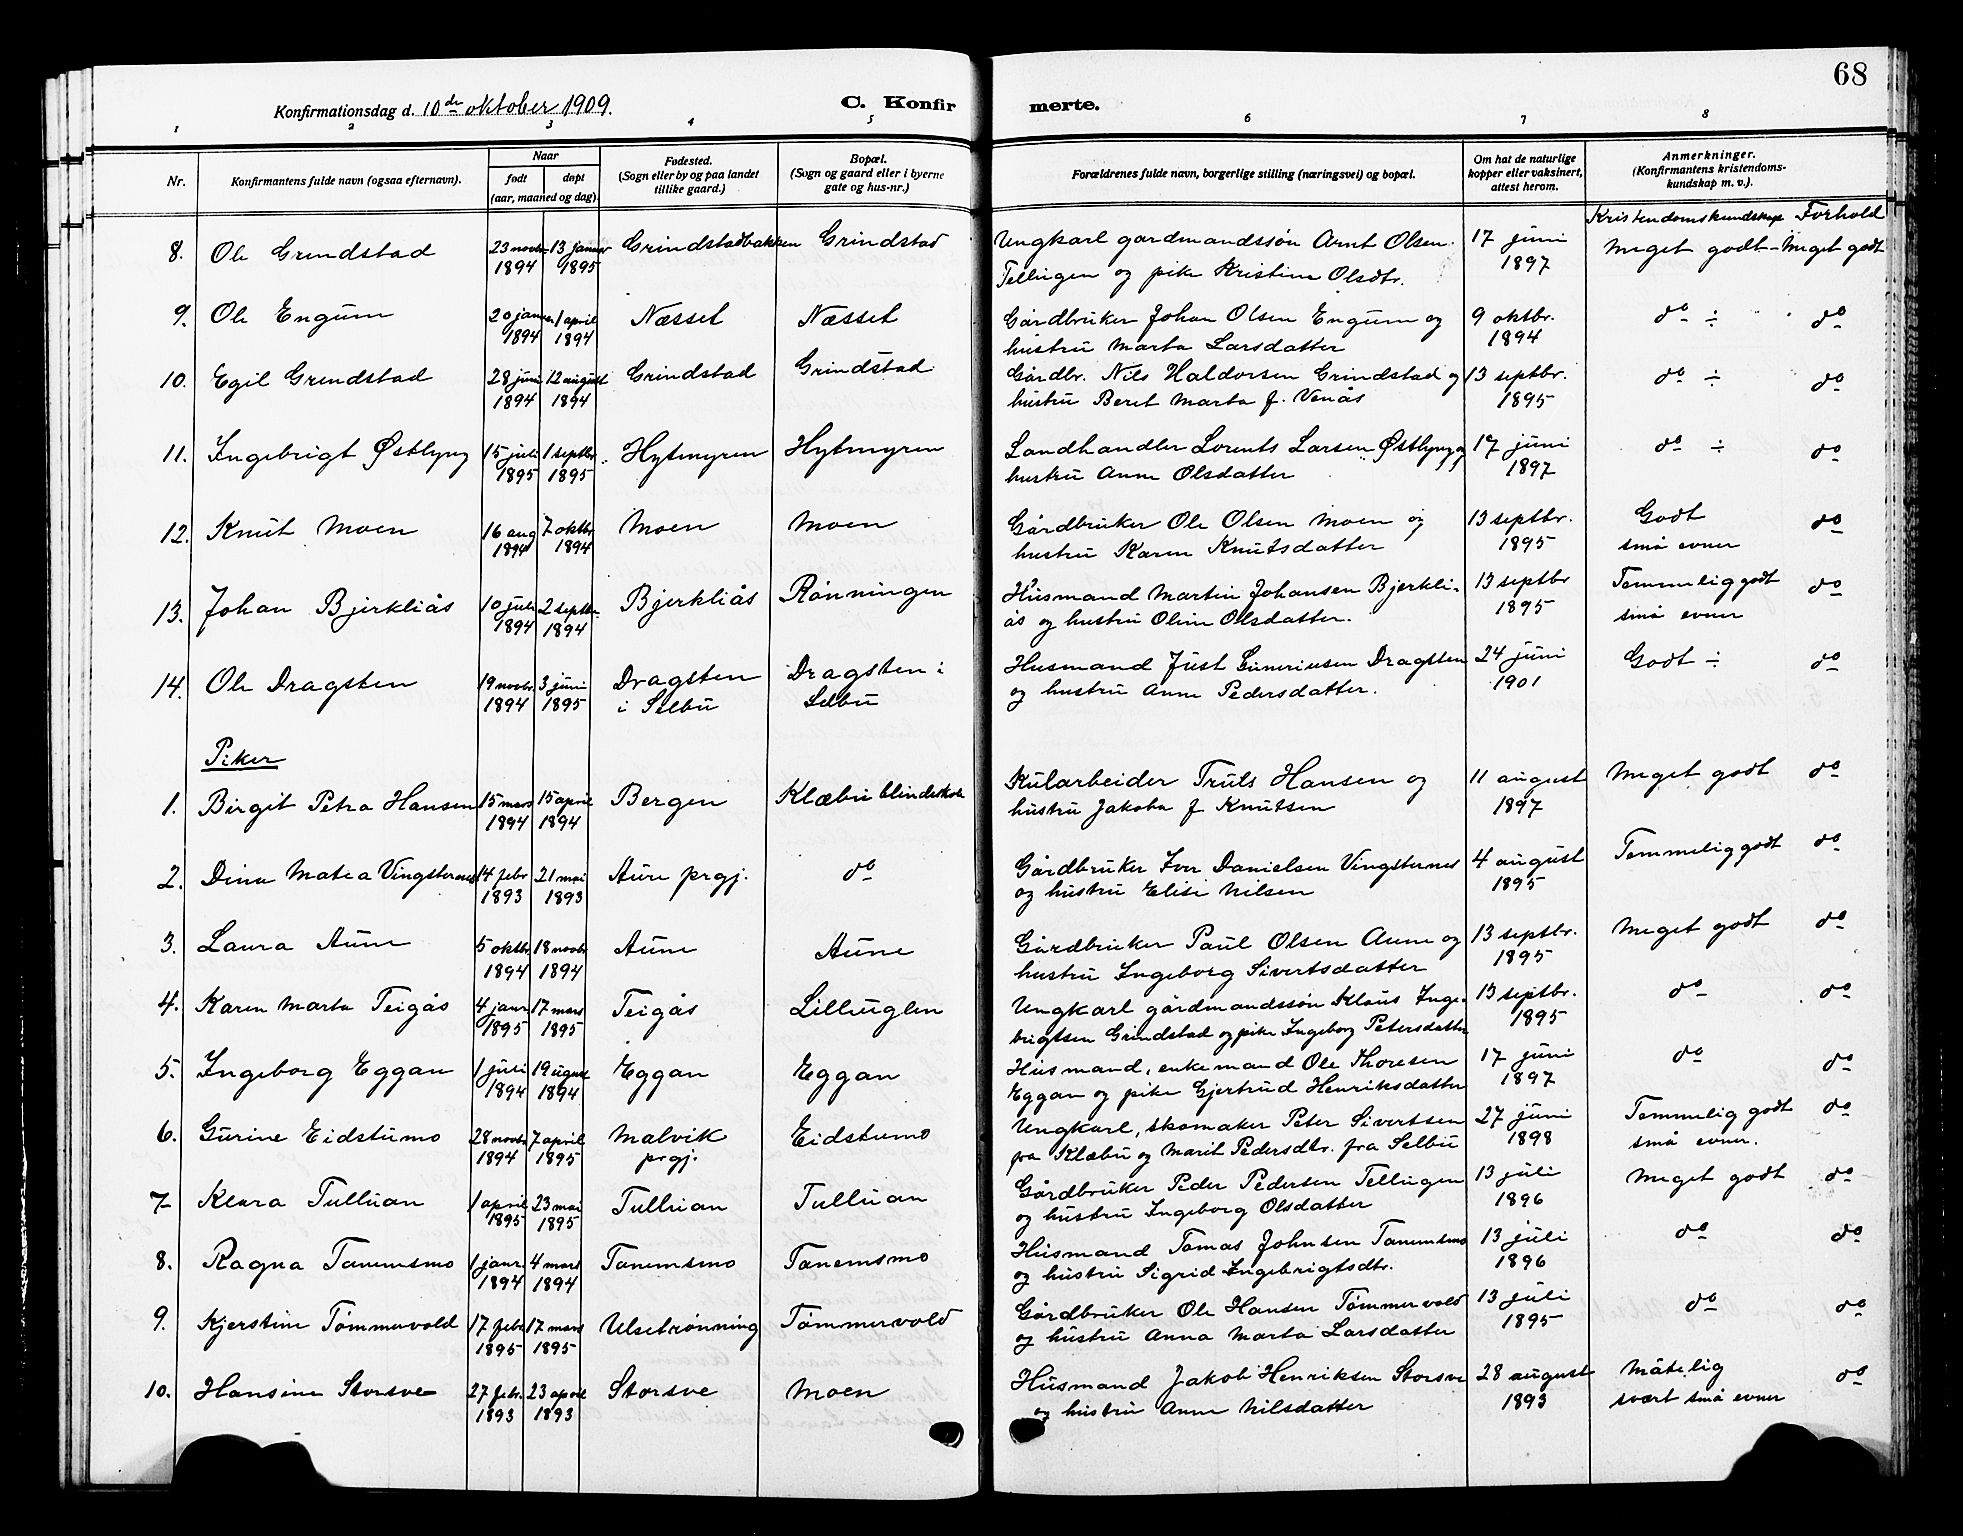 68
Konfirmationsdag d. 10de oktober 1909.
C. Konfirmerte.
1 2 3 4 5 6 7 8
Nr.
Konfirmantens fulde navn (ogsaa efternavn).
Naar
født
døpt
(aar, maaned og dag).
Fødested.
(Sogn eller by og paa landet
tillike gaard.)
Bopæl.
(Sogn og gaard eller i byerne
gate og hus-nr.)
Forældrenes fulde navn, borgerlige stilling (næringsvei) og bopæl.
Om hat de naturlige
kopper eller vaksinert,
attest herom.
Anmerkninger.
(Konfirmantens kristendoms-
kundskap m. v.).
Kristendomskundskap Forhold
8. Ole Grindstad 23 novbr 13 januar Grindstadbakken Grindstad Ungkarl gardmandssøn Arnt Olsen 17 juni Meget godt - Meget godt
1894 1895 Tellugen og pike Kristine Olsdtr. 1897
9. Ole Engum 20 januar 1 april Næsset Næsset Gårdbruker Johan Olsen Engum og 9 oktbr. do ÷ do
1894 1894 hustru Marta Larsdatter 1894
10. Egil Grindstad 28 juni 12 august Grindstad Grindstad Gårdbr. Nils Haldorsen Grindstad og 13 septbr. do ÷ do
1894 1894 hustru Beret Marta f. Venås 1895
11. Ingebrigt Østlyng 15 juli 1 septbr. Hytmyren Hytmyren Landhandler Lorents Larsen Østlyng og 17 juni do ÷ do
1895 1895 hustru Anne Olsdatter 1897
12. Knut Moen 16 aug 7 oktbr Moen Moen Gårdbruker Ole Olsen Moen og 13 septbr. Godt do
1894 1894 hustru Karen Knutsdatter 1895 små evner
13. Johan Bjerkliås 10 juli 2 septbr. Bjerkliås Rønningen Husmand Martin Johansen Bjerkli- 13 septbr Temmelig godt do
1894 1894 ås og hustru Oline Olsdatter. 1895 små evner
14. Ole Dragsten 19 novbr. 3 juni Dragsten Dragsten i Husmand Just Guneriusen Dragsten 24 juni Godt ÷ do
1894 1895 i Selbu Selbu og hustru Anne Pedersdatter. 1901
Piker
1. Birgit Petra Hansen 15 mars 15 april Bergen Klæbu blindeskole Kularbeider Truls Hansen og 11 august Meget godt do
1894 1894 hustru Jakoba f Knutsen 1897
2. Dina Matea Vingsternes 14 febr 21 mai Aure prgj. do Gårdbruker Iver Danielsen Vingsternes 4 august Temmelig godt do
1893 1893 og hustru Elise Nilsen 1895
3. Laura Aune 5 oktbr 18 novbr Aune Aune Gårdbruker Paul Olsen Aune og 13 septbr. Meget godt do
1894 1894 hustru Ingeborg Sivertsdatter 1895
4. Karen Marta Teigås 4 janr 17 mars Teigås Lilleuglen Ungkarl gårdmandssøn Klaus Inge- 13 septbr. do do
1895 1895 brigtsen Grindstad og pike Ingeborg Petersdatter 1895
5. Ingeborg Eggan 1 juli 19 august Eggan Eggan Husmand, enkemand Ole Thoresen 17 juni do do
1894 1894 Eggan og pike Gjertrud Henriksdatter 1897
6. Gurine Eidstumo 28 novbr 7 april Malvik Eidstumo Ungkarl, skomaker Peter Sivertsen 27 juni Temmelig godt do
1894 1895 prgj. fra Klæbu og Marit Pedersdtr. fra Selbu 1898 små evner.
7. Klara Tulluan 1 april 23 mai Tulluan Tulluan Gårdbruker Peder Pedersen Tellugen 13 juli Meget godt do
1895 1895 og hustru Ingeborg Olsdatter 1896
8. Ragna Tanemsmo 1 janr. 4 mars Tanemsmo Tanemsmo Husmand Tomas Johnsen Tanemsmo 13 juli do do
1894 1894 og hustru Sigrid Ingebrigtsdtr. 1896
9. Kjerstine Tømmervold 17 febr 17 mars Ulsetrønning Tømmervold Gårdbruker Ole Hansen Tømmervold 13 juli do do
1895 1895 og hustru Anna Marta Larsdatter 1895
10. Hansine Storsve 27 febr. 23 april Storsve Moen Husmand Jakob Henriksen Storsve 28 august Måtelig do
1893 1893 og hustru Anne Nilsdatter 1893 svært små evner